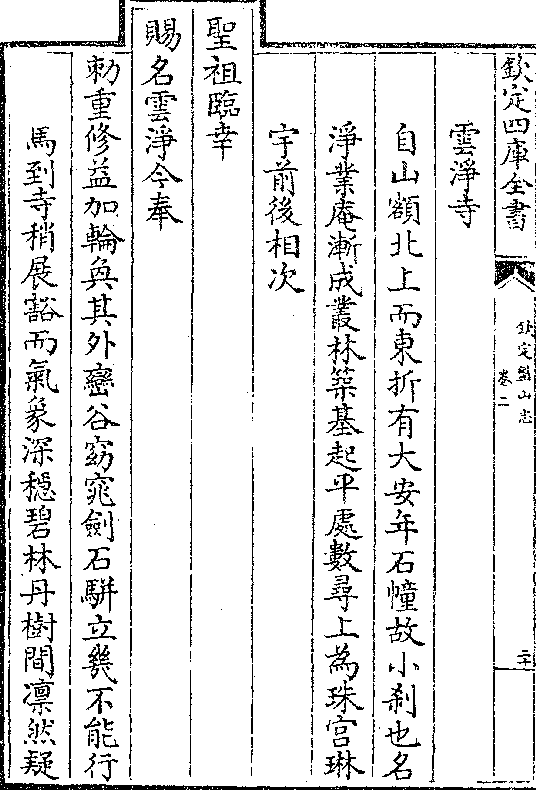 欽定四庫全書
欽定盤山志
卷二
二十
雲淨寺
自山額北上而東折有大安年石幢故小刹也名
淨業庵漸成叢林築基起平處數尋上為珠宫琳
宇前後相次
聖祖臨幸
賜名雲淨今奉
勅重修益加輪奐其外巒谷窈窕劍石駢立幾不能行
馬到寺稍展豁而氣象深穩碧林丹樹間凛然疑